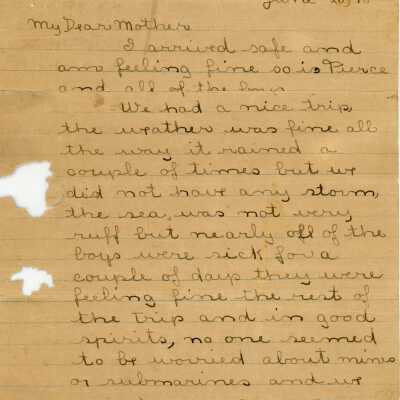 My Dear Mother
I arrived safe and
am feeling fine so is Pierce
and all of the boys
We had a nice trip
the weather was fine all
the way it rained a
couple of times but we
did not have any storm,
the sea, was not very
ruff but nearly all of the
boys were sick for a
couple of days they were
feeling fine the rest of
the trip and in good
spirits, no one seemed
to be worried about mines
or submarines and we